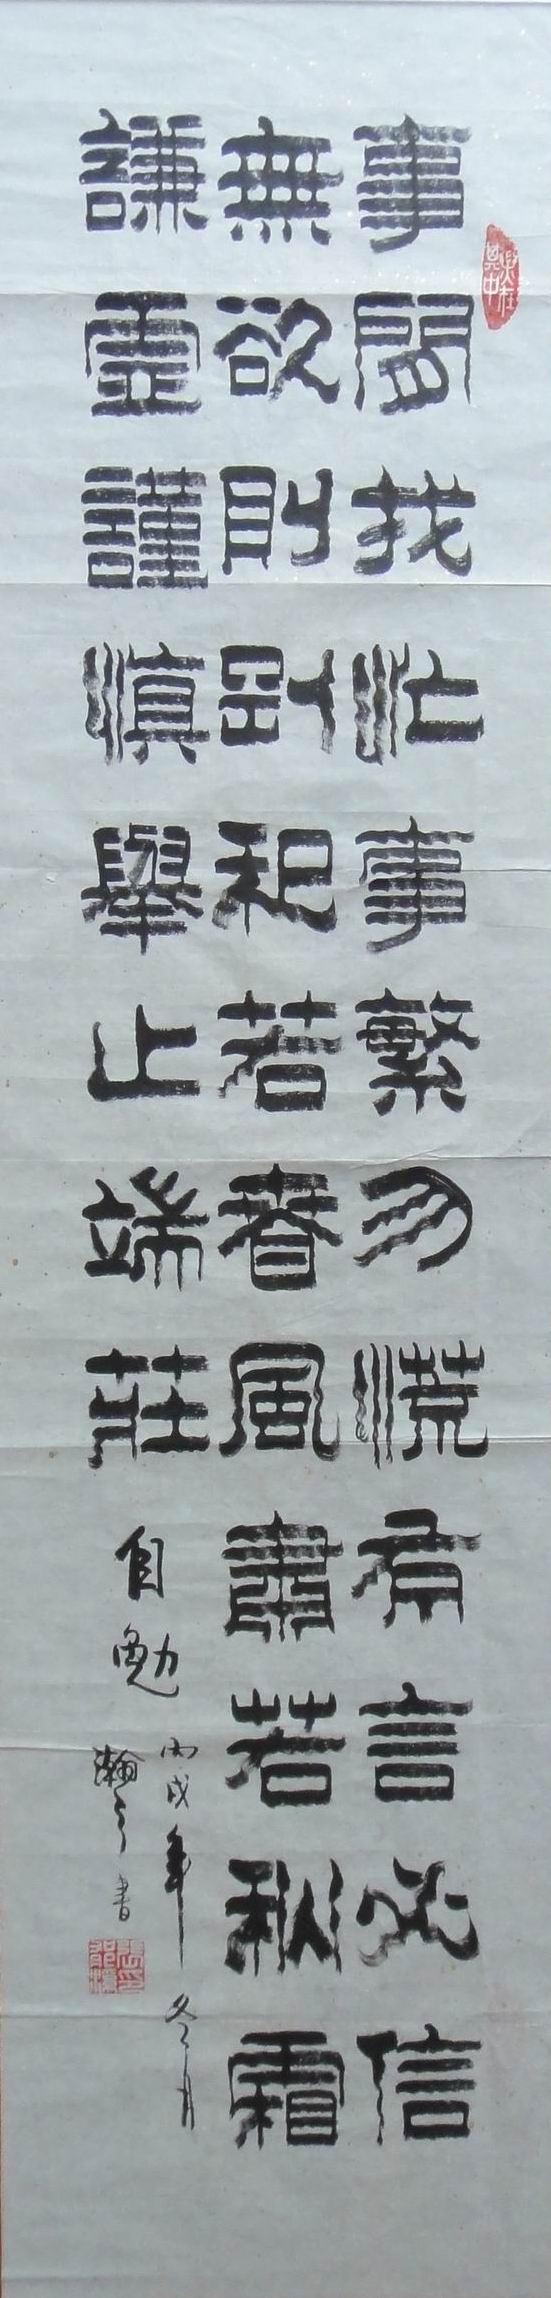 樂在其中
事閒找忙事繁勿慌有言必信
無欲則剛和若春風肅若秋霜
謙虛謹慎舉止端莊
自勉
丙戌年冬月
瀚書